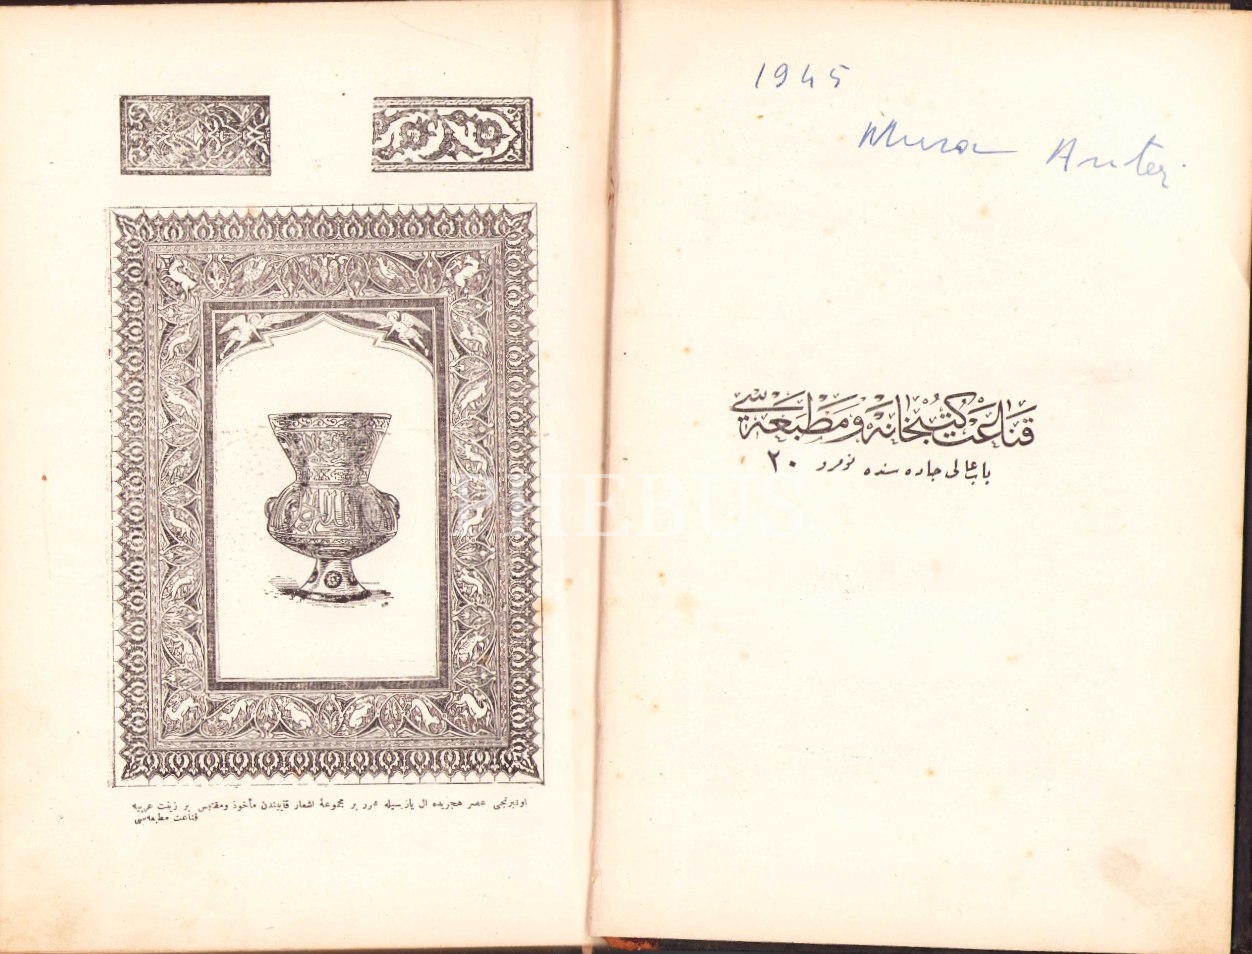 اونبرنجی عصر هجریده ال یازیسیله محرر بر مجموعهٔ اشعار قابیندن مأخوذ ومقتبس بر زینت عربیه
قناعت مطبعه‌سی
1945
Musa Anter
قناعت كتبخانه ومطبعه‌سی
بابعالی جاده سنده نومرو ٢٠
PHEBUS